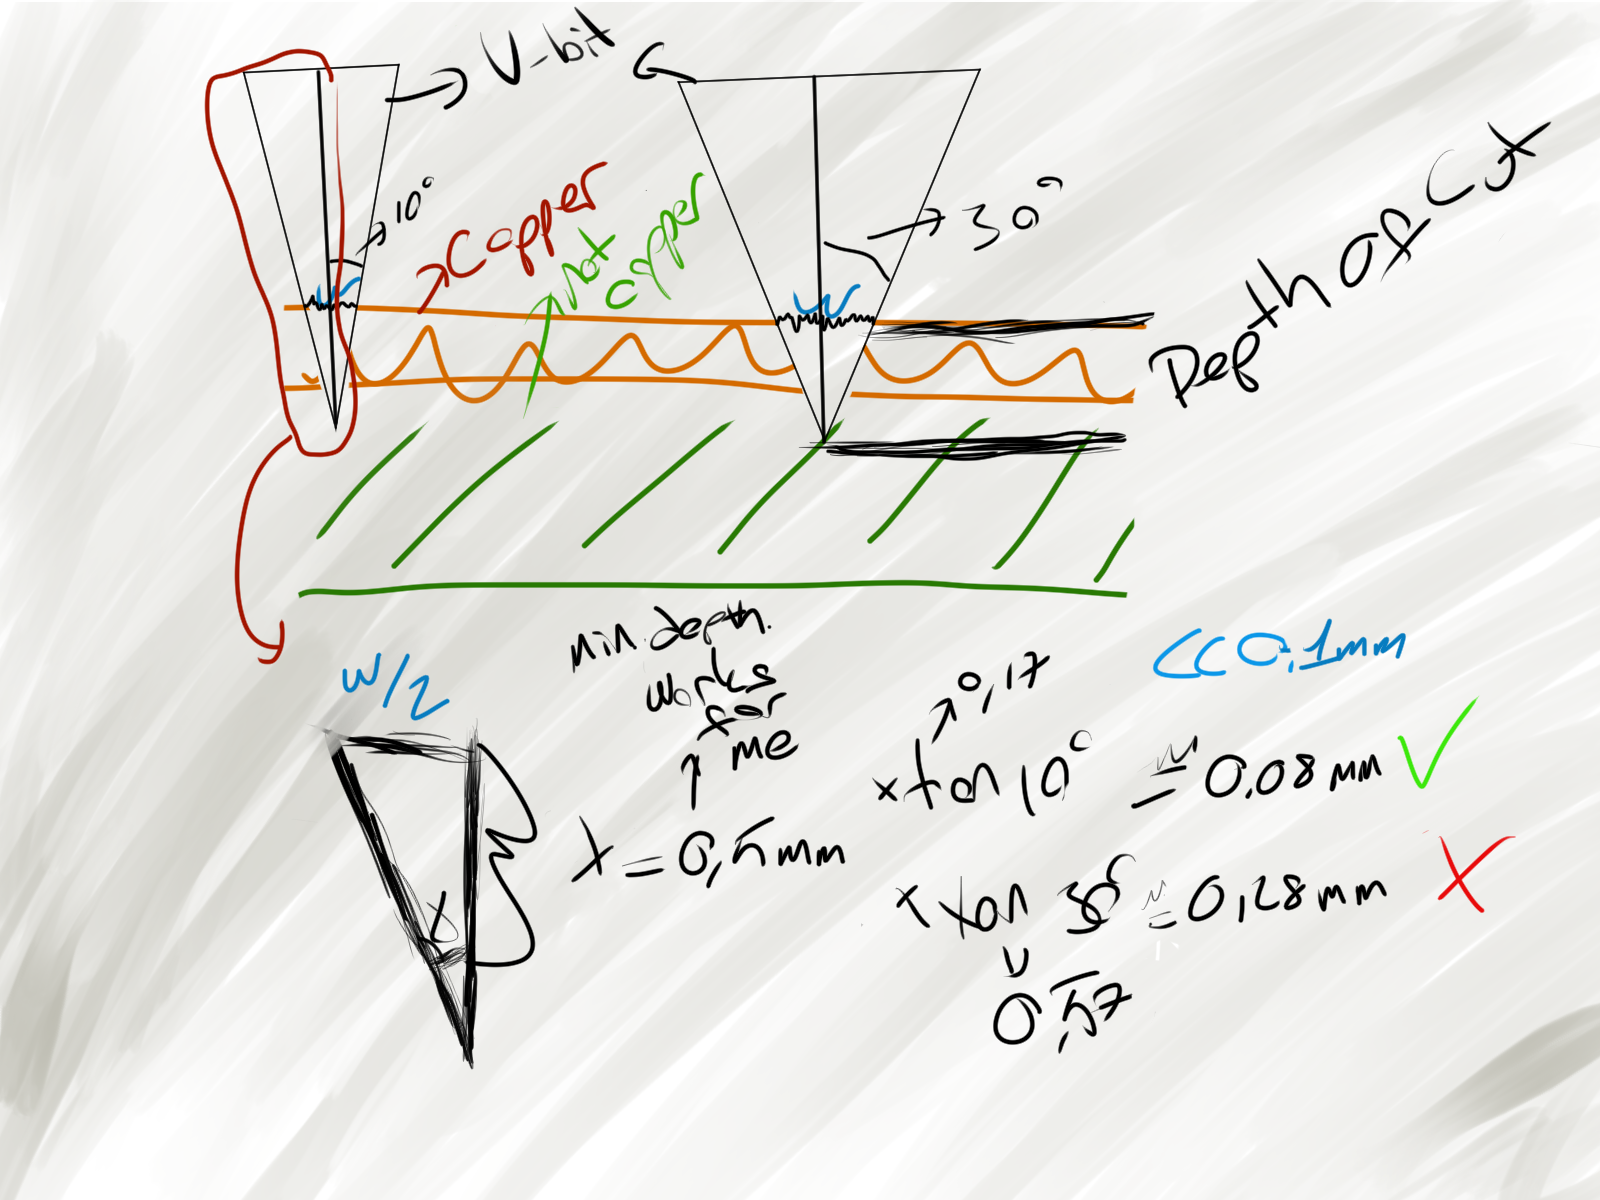 V-bit
10°
Copper
Not
copper
30°
w
w
Depth Of Cut
w/2
min. depth.
works
for
me
x = 0,5mm
α
0,17
x tan 10° ≅ 0,08 mm ✓
<< 0,1mm
x tan 30° ≅ 0,28 mm X
0,57